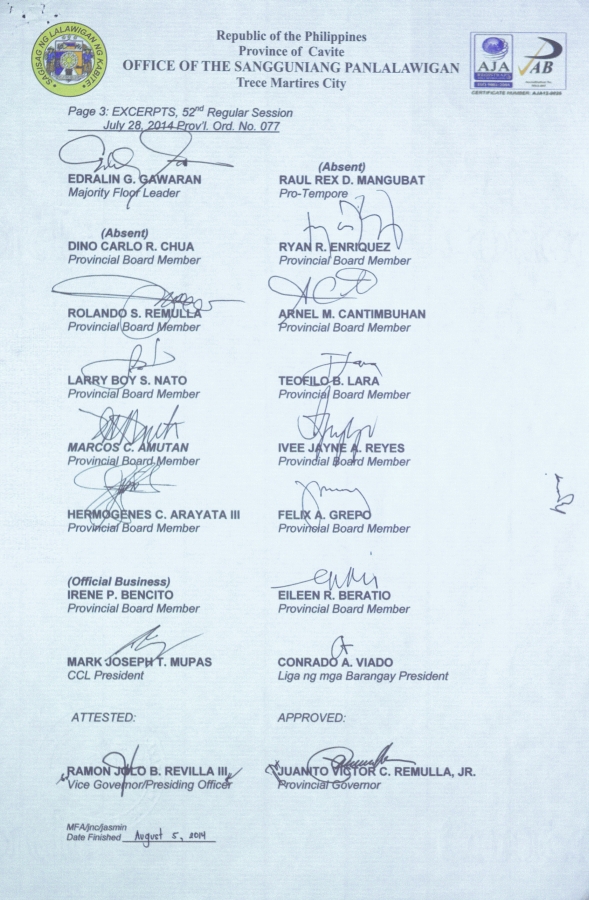 Republic of the Philippines
Province of Cavite
OFFICE OF THE SANGGUNIANG PANLALAWIGAN
Trece Martires City
SAGISAG NG LALAWIGAN NG KABITE
AJA
JAB
Page 3: EXCERPTS, 52nd Regular Session
July 28, 2014 Prov'l. Ord. No. 077
EDRALIN G. GAWARAN
Majority Floor Leader
(Absent)
RAUL REX D. MANGUBAT
Pro-Tempore
(Absent)
DINO CARLO R. CHUA
Provincial Board Member
RYAN R. ENRIQUEZ
Provincial Board Member
ROLANDO S. REMULLA
Provincial Board Member
ARNEL M. CANTIMBUHAN
Provincial Board Member
LARRY BOY S. NATO
Provincial Board Member
TEOFILO B. LARA
Provincial Board Member
MARCOS C. AMUTAN
Provincial Board Member
IVEE JAYNE A. REYES
Provincial Board Member
HERMOGENES C. ARAYATA III
Provincial Board Member
FELIX A. GREPO
Provincial Board Member
(Official Business)
IRENE P. BENCITO
Provincial Board Member
EILEEN R. BERATIO
Provincial Board Member
MARK JOSEPH T. MUPAS
CCL President
CONRADO A. VIADO
Liga ng mga Barangay President
ATTESTED:
APPROVED:
RAMON JOLO B. REVILLA III
Vice Governor/Presiding Officer
JUANITO VICTOR C. REMULLA, JR.
Provincial Governor
MFA/jnc/jasmin
Date Finished August 5, 2014